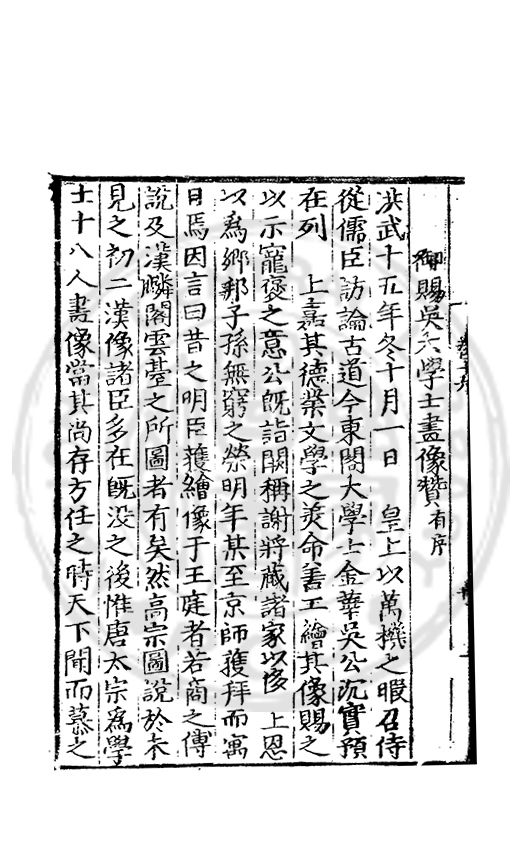 御賜吳大學士畫像贊有序
洪武十五年冬十月一日　皇上以萬機之暇召侍
從儒臣訪論古道今東閣大學士金華吳公沉實預
在列　上嘉其德業文學之美命善工繪其像賜之
以示寵褒之意公既詣闕稱謝將藏諸家以侈　上恩
以為鄉邦子孫無窮之榮明年某至京師獲拜而寓
目焉因言曰昔之明臣獲繪像于王庭者若商之傅
說及漢麟閣雲臺之所圖者有矣然高宗圖說於未
見之初二漢像諸臣多在既没之後惟唐太宗為學
士十八人畫像當其尚存方任之時天下聞而慕之